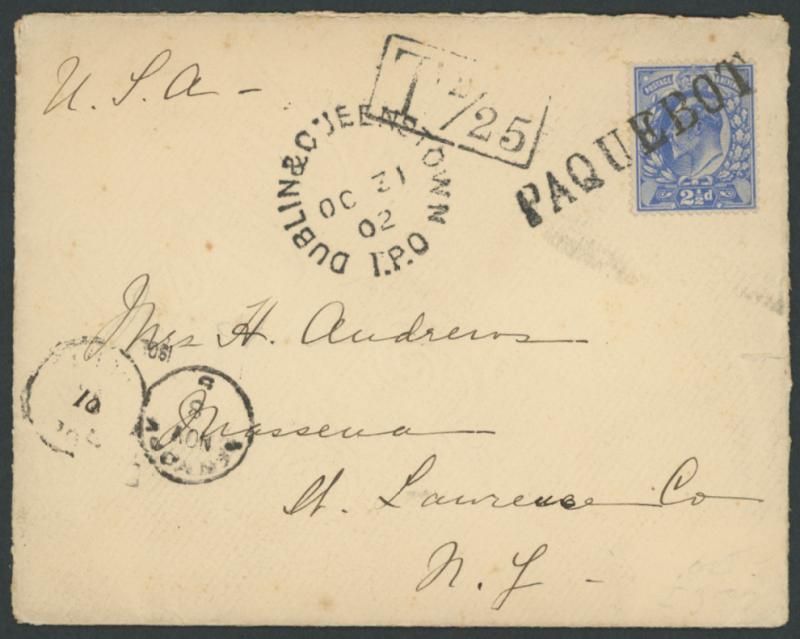 U. S. A -
T 1D/25
POSTAGE
2½d
PAQUEBOT
DUBLIN & QUEENSTOWN T.P.O
OC 31
02
Mrs H. Andrews
Massena
St. Lawrence Co
N. Y -
10
NOV